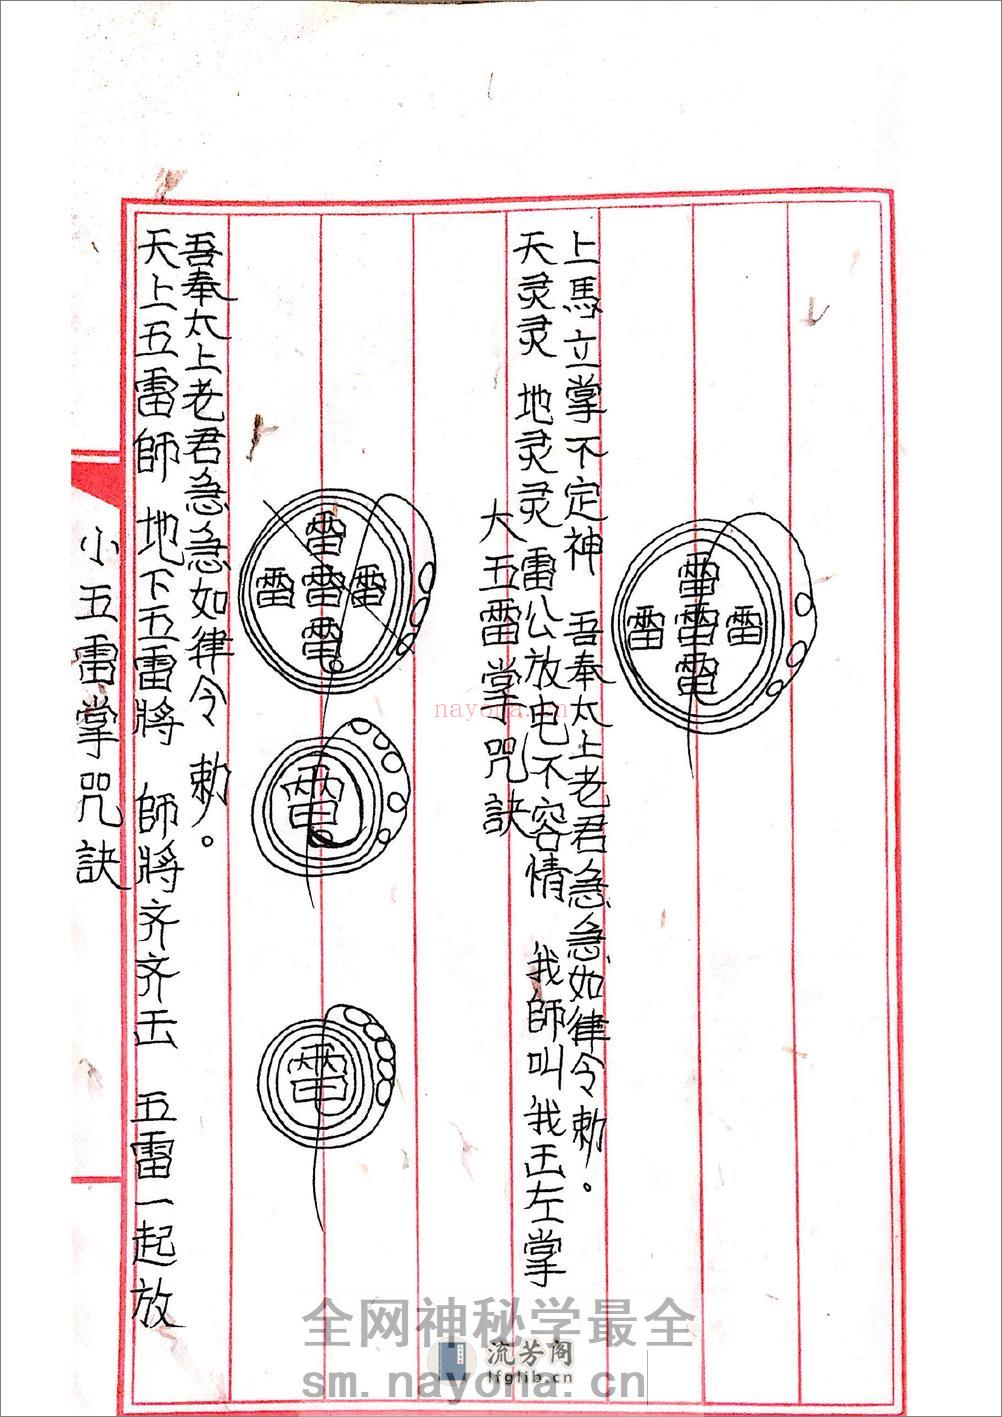 小五雷掌咒訣
天上五雷師 地下五雷將 師將齐齐玉 五雷一起放
吾奉太上老君急急如律令 勅。
雷
雷雷雷
雷
雷
雷
大五雷掌咒訣
天灵灵 地灵灵 雷公放电不容情 我師叫我玉左掌
上馬立掌不定神 吾奉太上老君急急如律令勅。
雷
雷雷雷
雷
nayona.cn
全网神秘学最全
流芳阁
lfglib.cn
sm.nayona.cn